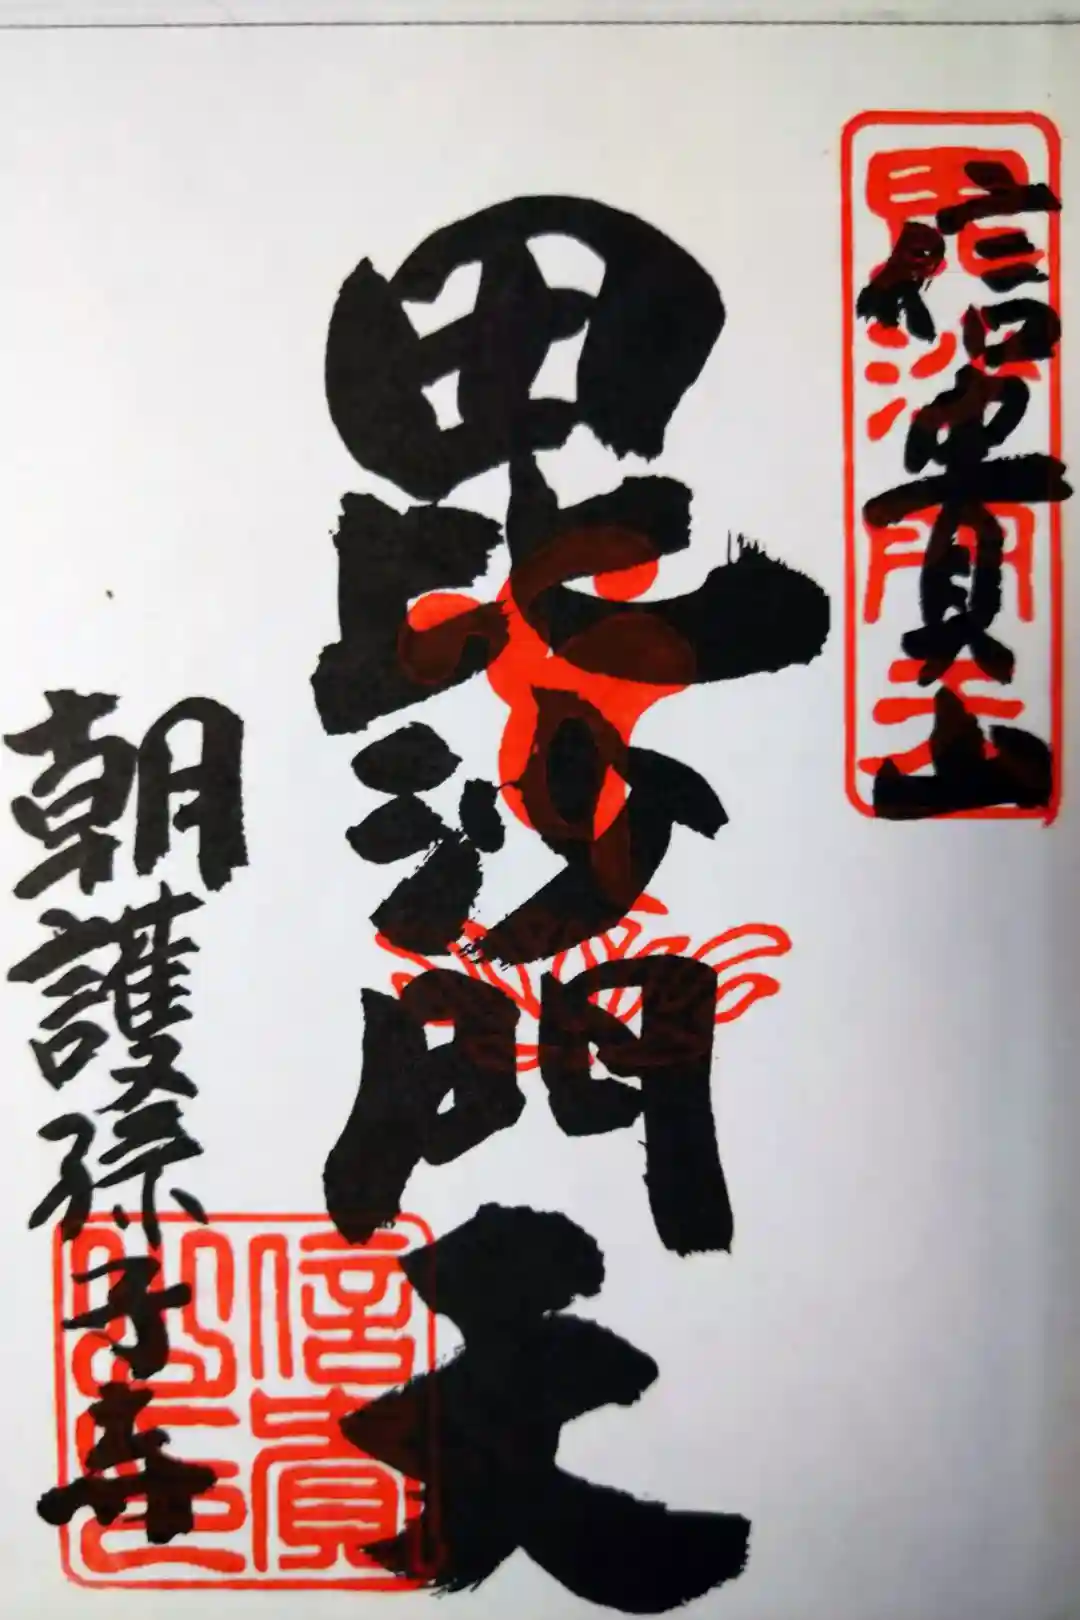 信貴山
毘沙門天
朝護孫子寺